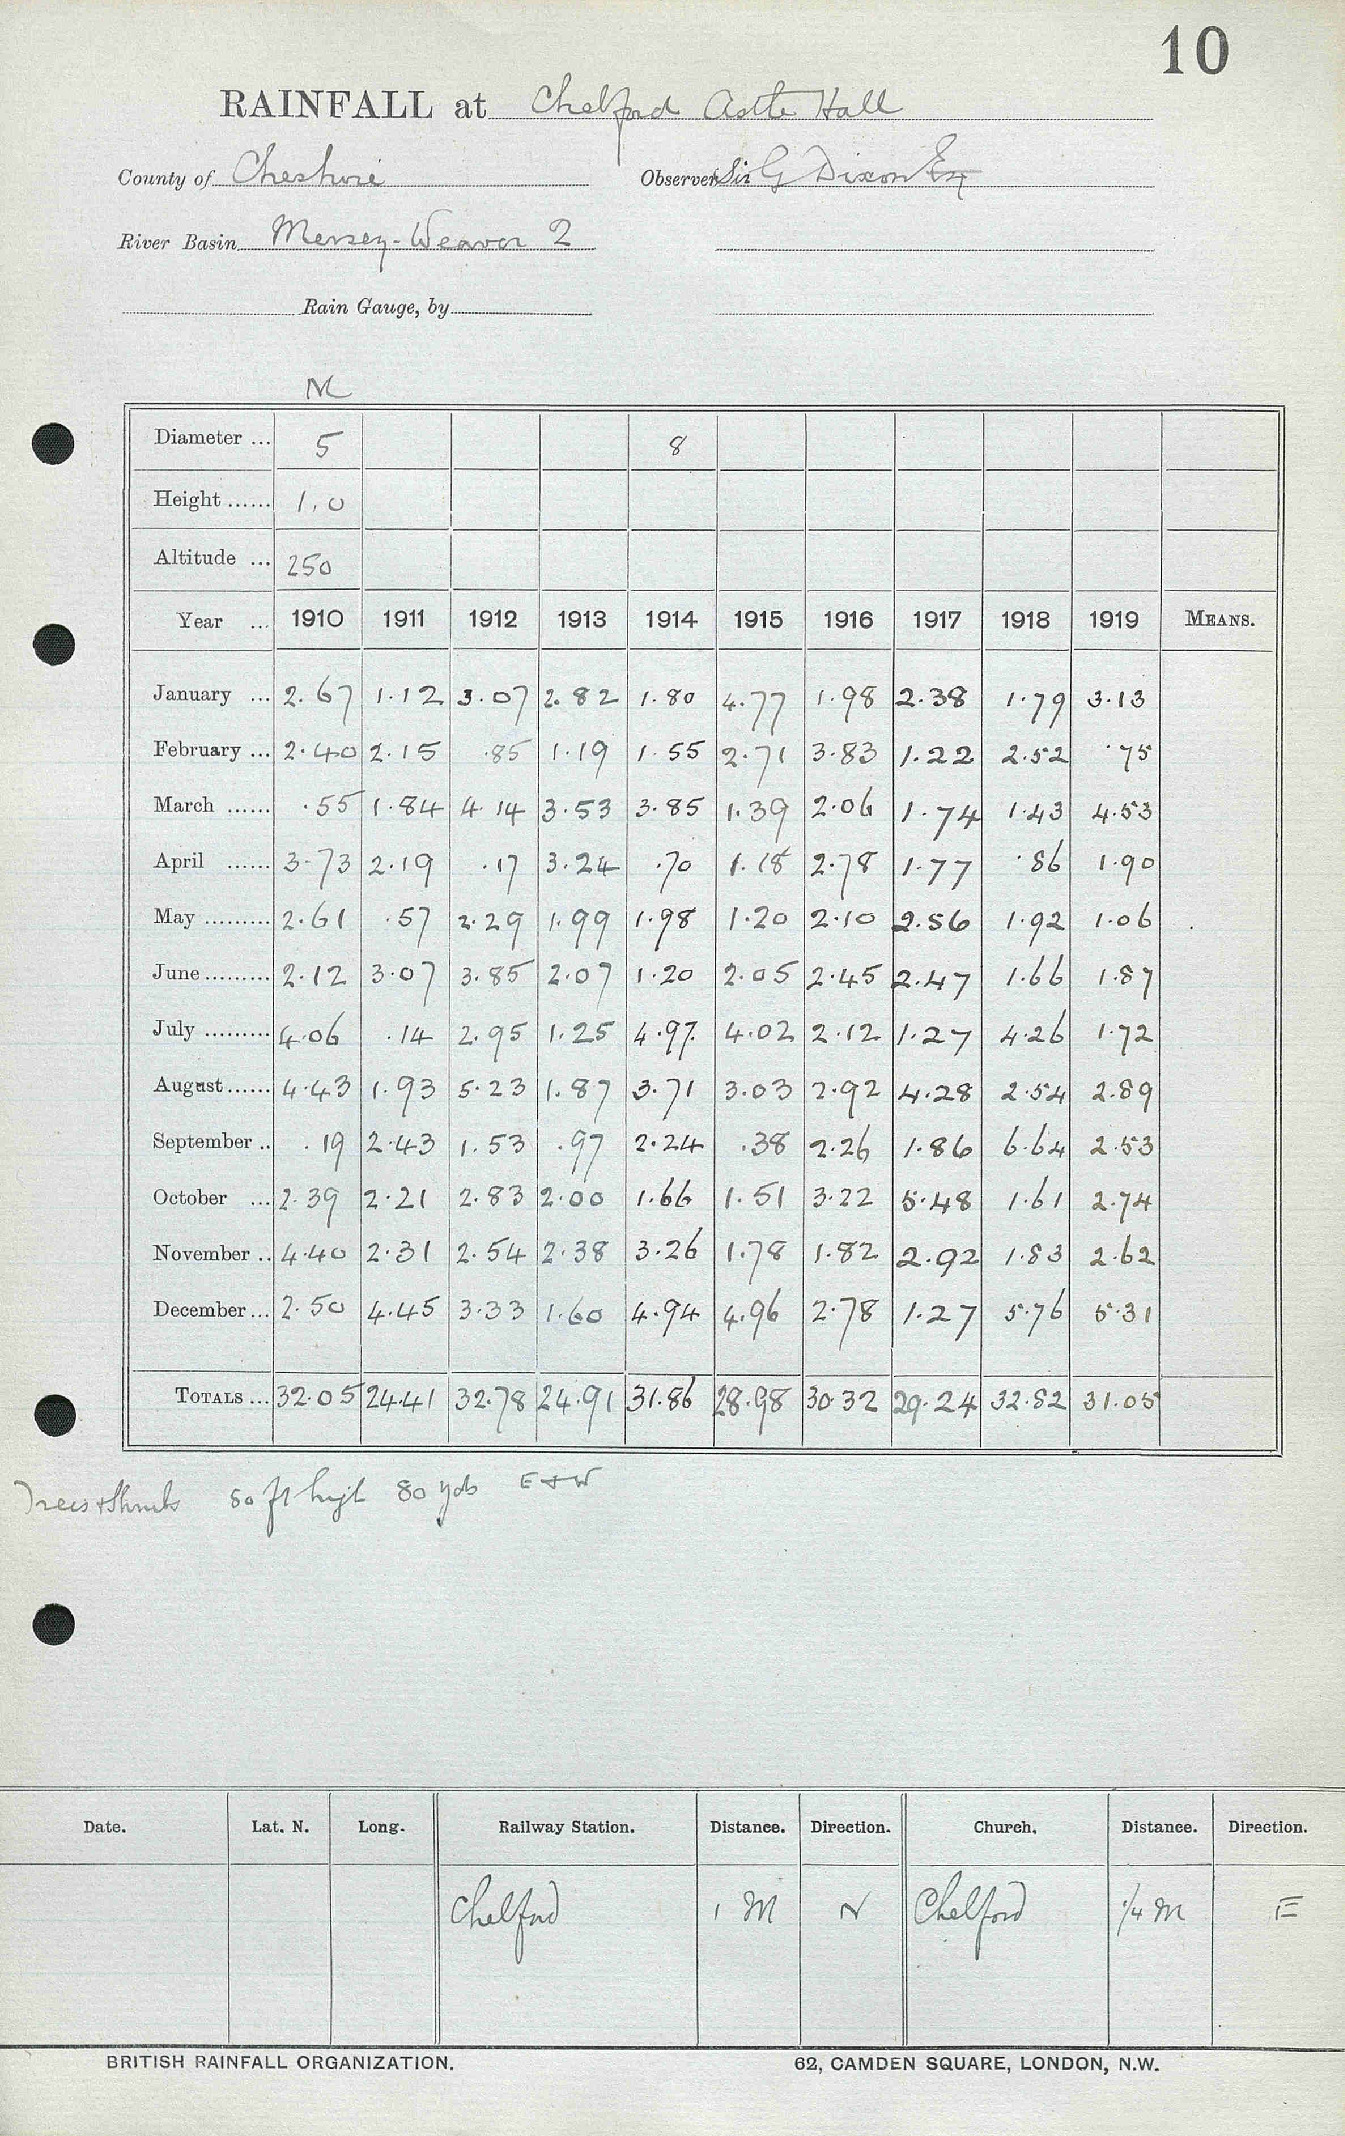 10
RAINFALL at Chelford Astle Hall
County of Cheshire Observer Sir G Dixon Esq
River Basin Mersey-Weaver 2
Rain Gauge, by
M
Diameter ... 5 8
Height ...... 1.0
Altitude ... 250
Year ... 1910 1911 1912 1913 1914 1915 1916 1917 1918 1919 MEANS.
January ... 2.67 1.12 3.07 2.82 1.80 4.77 1.98 2.38 1.79 3.13
February ... 2.40 2.15 .85 1.19 1.55 2.71 3.83 1.22 2.52 .75
March ...... .55 1.84 4.14 3.53 3.85 1.39 2.06 1.74 1.43 4.53
April ...... 3.73 2.19 .17 3.24 .70 1.18 2.78 1.77 .86 1.90
May ......... 2.61 .57 2.29 1.99 1.98 1.20 2.10 2.56 1.92 1.06
June ......... 2.12 3.07 3.85 2.07 1.20 2.05 2.45 2.47 1.66 1.87
July ......... 4.06 .14 2.95 1.25 4.97 4.02 2.12 1.27 4.26 1.72
August ...... 4.43 1.93 5.23 1.87 3.71 3.03 2.92 4.28 2.54 2.89
September .. .19 2.43 1.53 .97 2.24 .38 2.26 1.86 6.64 2.53
October ... 2.39 2.21 2.83 2.00 1.66 1.51 3.22 5.48 1.61 2.74
November .. 4.40 2.31 2.54 2.38 3.26 1.78 1.82 2.92 1.83 2.62
December ... 2.50 4.45 3.33 1.60 4.94 4.96 2.78 1.27 5.76 5.31
TOTALS ... 32.05 24.41 32.78 24.91 31.86 28.98 30.32 29.24 32.82 31.05
Trees + Shrubs 50 ft high 80 yds E + W
Date. Lat. N. Long. Railway Station. Distance. Direction. Church. Distance. Direction.
Chelford 1 M N Chelford 1/4 M E
BRITISH RAINFALL ORGANIZATION. 62, CAMDEN SQUARE, LONDON, N.W.